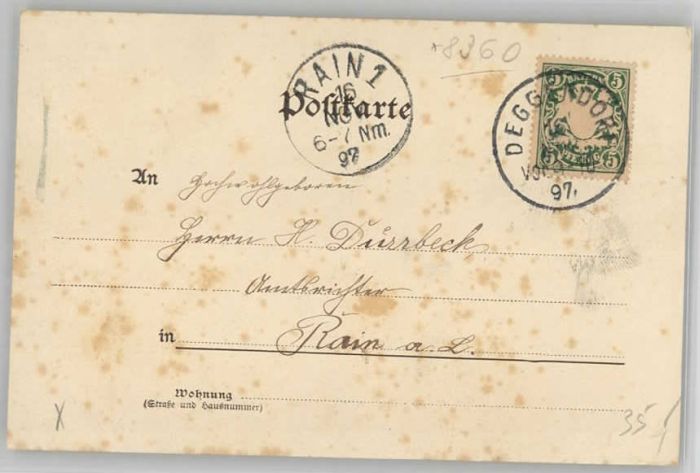 *8360
RAIN 1
16
NOV
6-7 Nm.
97
Postkarte
DEGGENDORF
97.
5 5
5 5
An Hochwohlgeboren
Herrn K. Dürrbeck
Amtsrichter
in Rain a. L.
Wohnung
(Straße und Hausnummer)
X
35